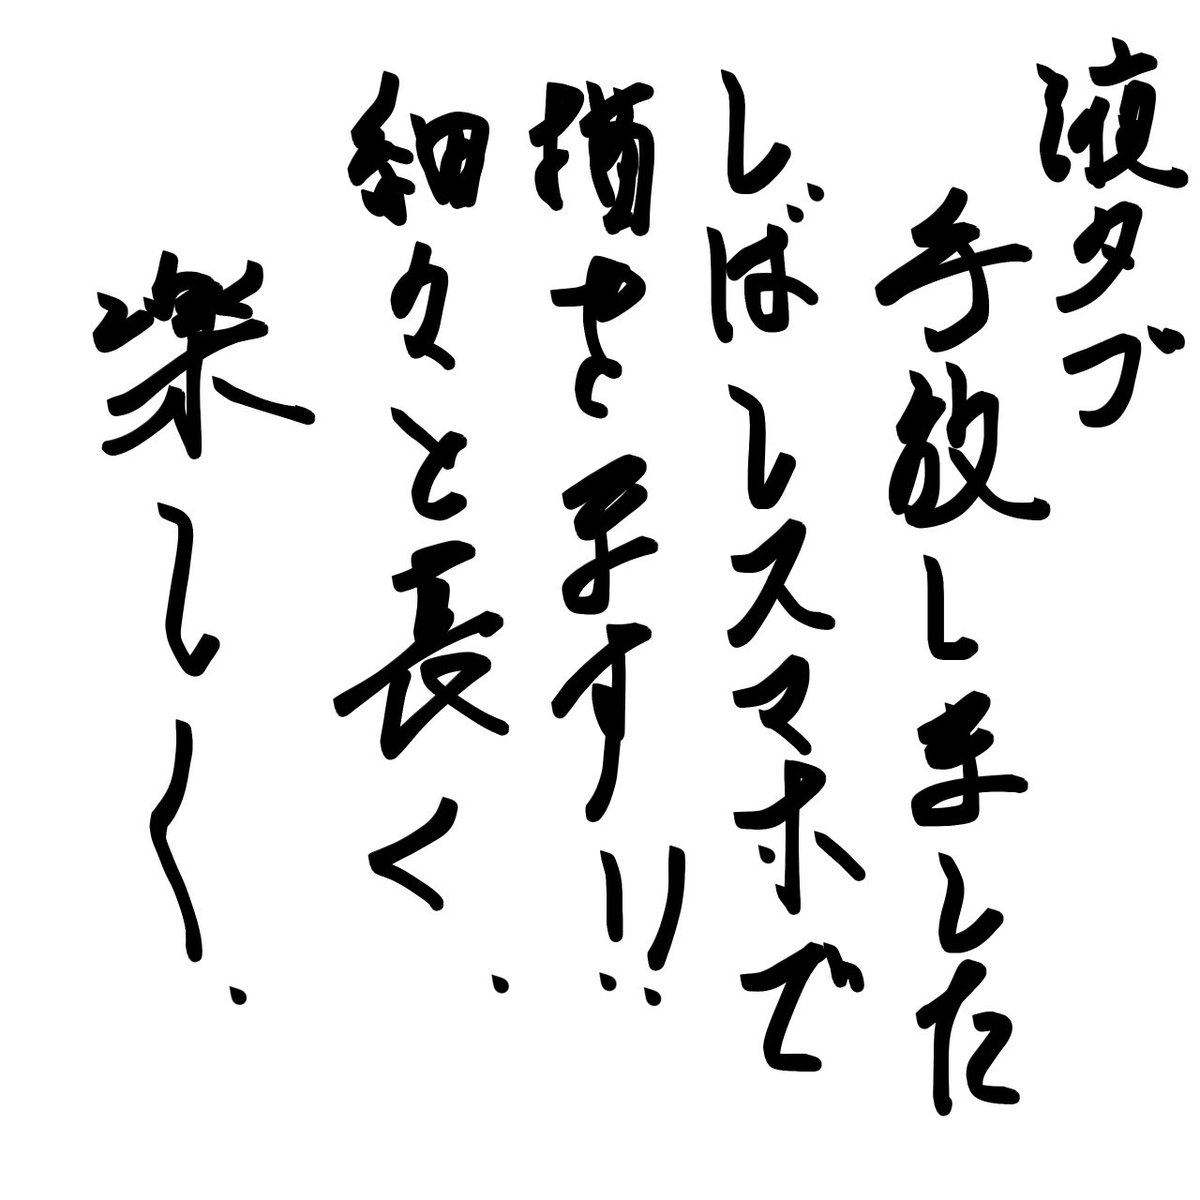 液タブ
手放しました
しばしスマホで
描きます!!
細々と長く.
楽しく.